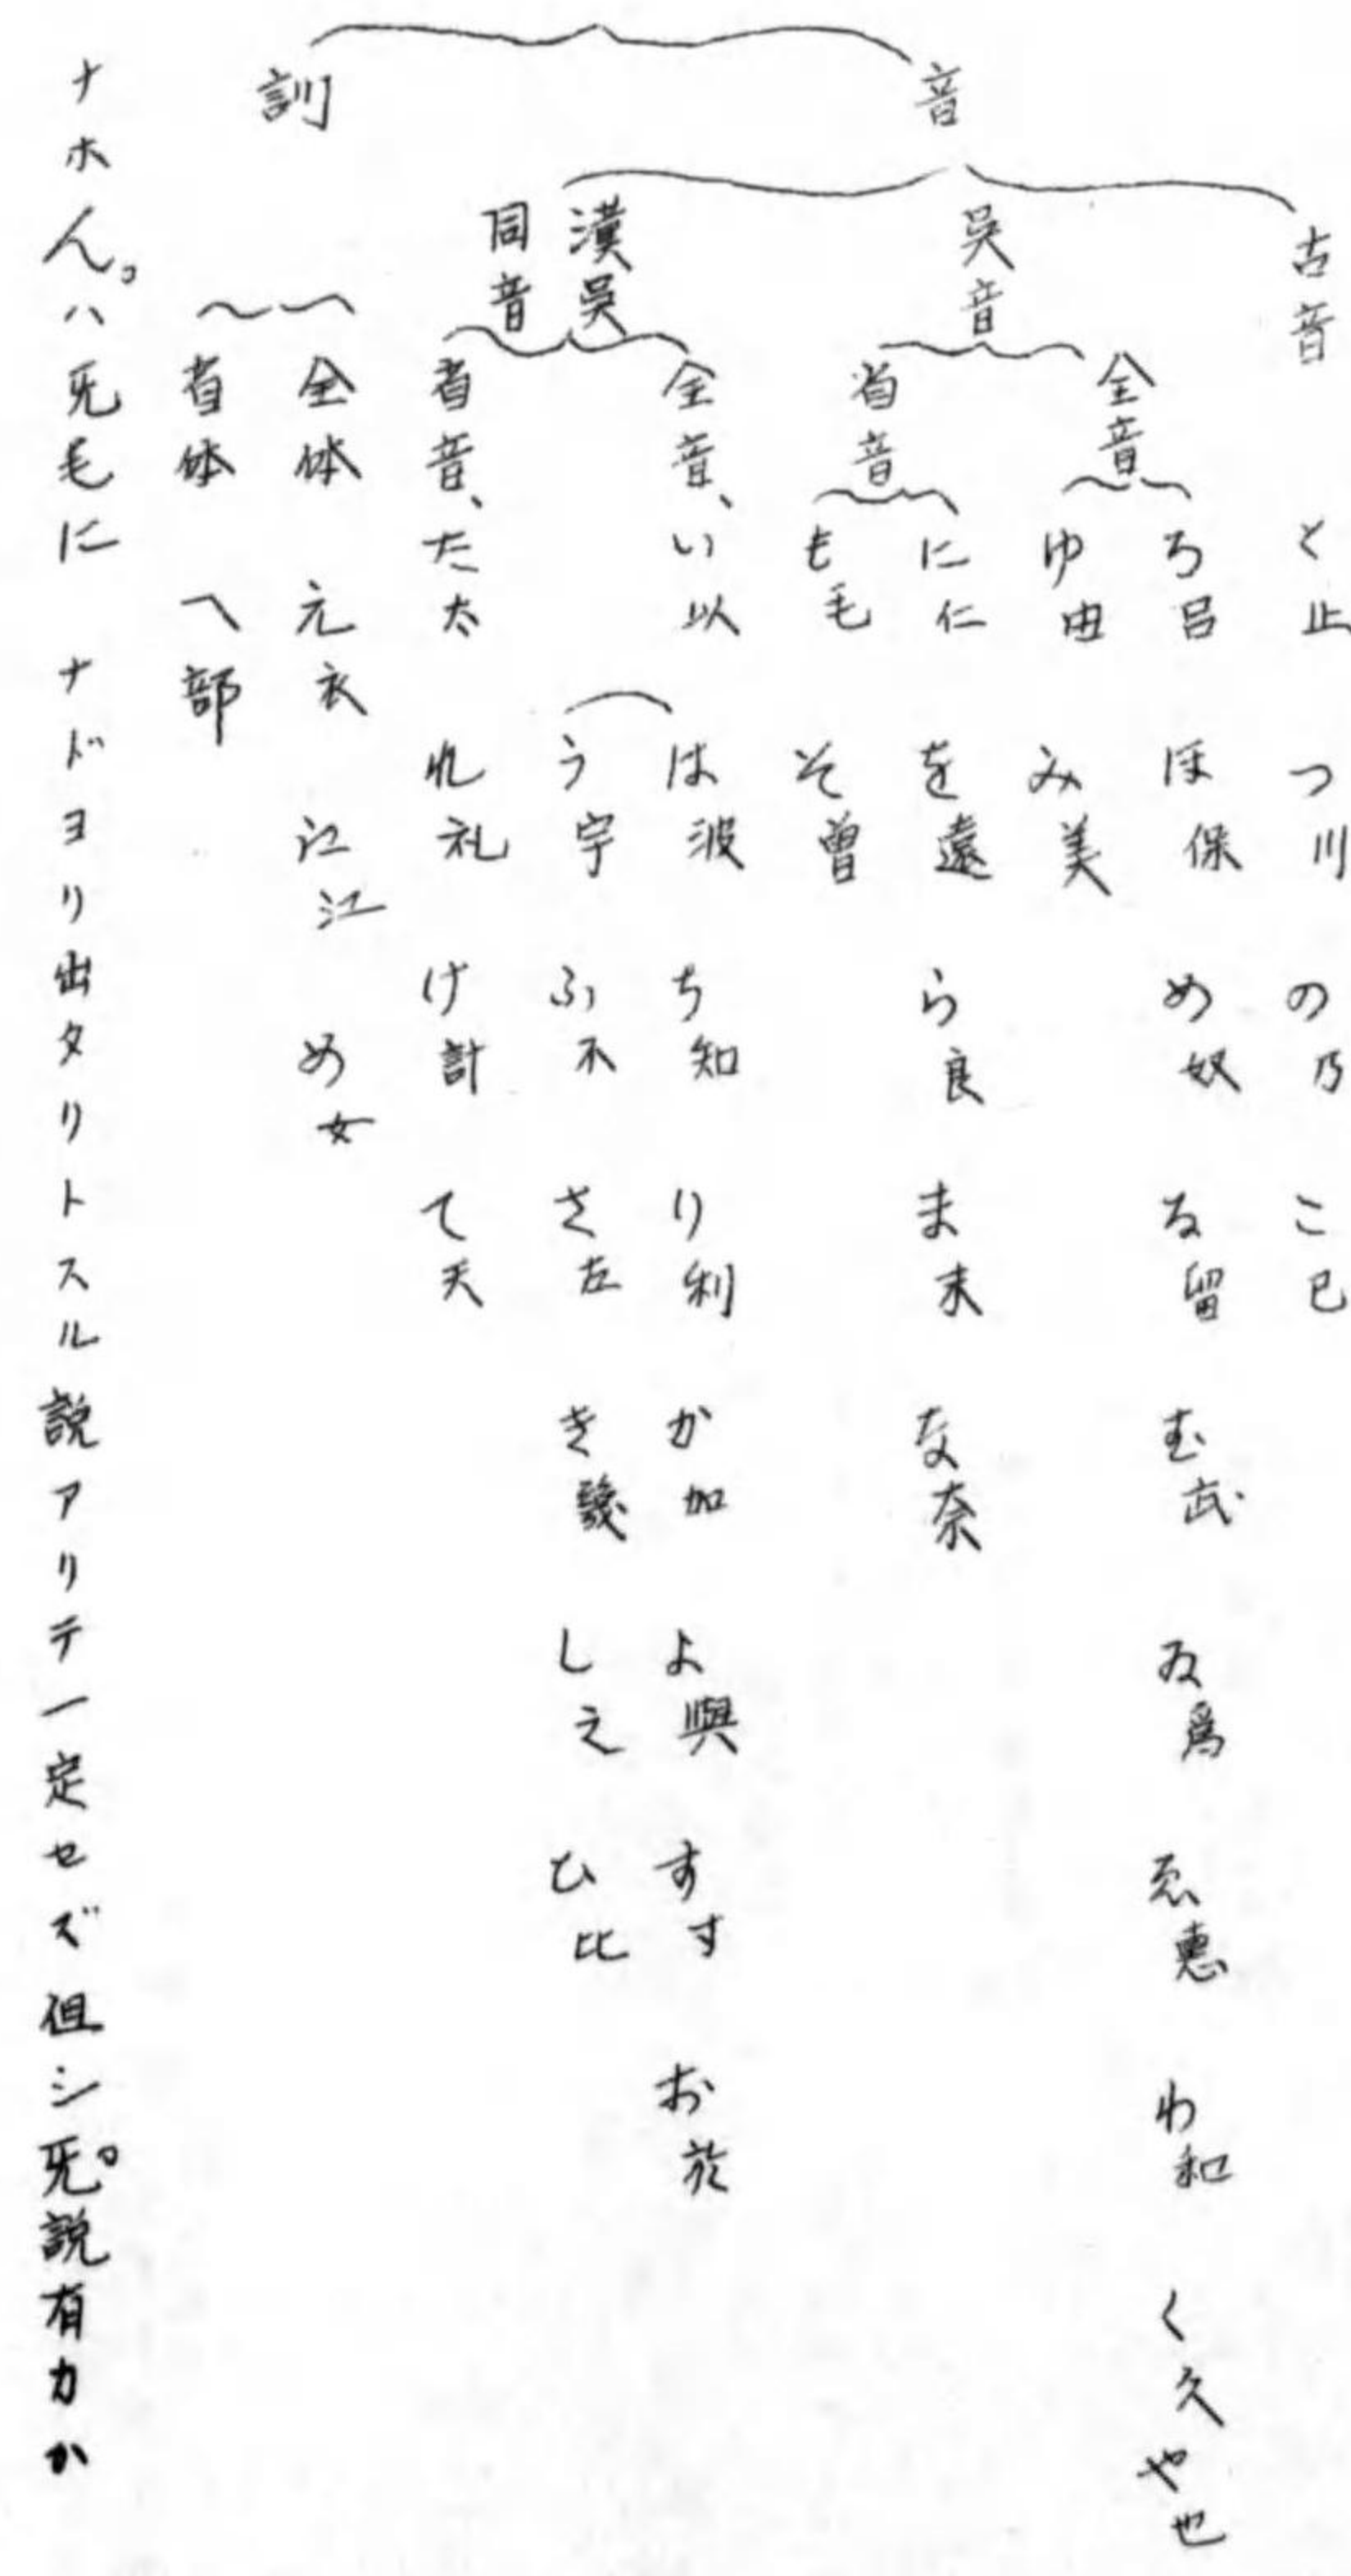 音
古音 と止 つ川 の乃 こ己
呉音
全音
ろ呂 ほ保 ぬ奴 る留 む武 ゐ爲 ゑ恵 わ和 く久 や也
ゆ由 み美
省音
に仁 を遠 ら良 ま末 な奈
も毛 そ曽
漢呉同音
全音、い以 は波 ち知 り利 か加 よ與 す寸 お於
う宇 ふ不 さ左 き幾 し之 ひ比
省音、た太 れ礼 け計 て天
訓
全体 え衣 江江 め女
省体 へ部
ナホん。ハ旡毛に ナドヨリ出タリトスル説アリテ一定セズ但シ旡。説有力か